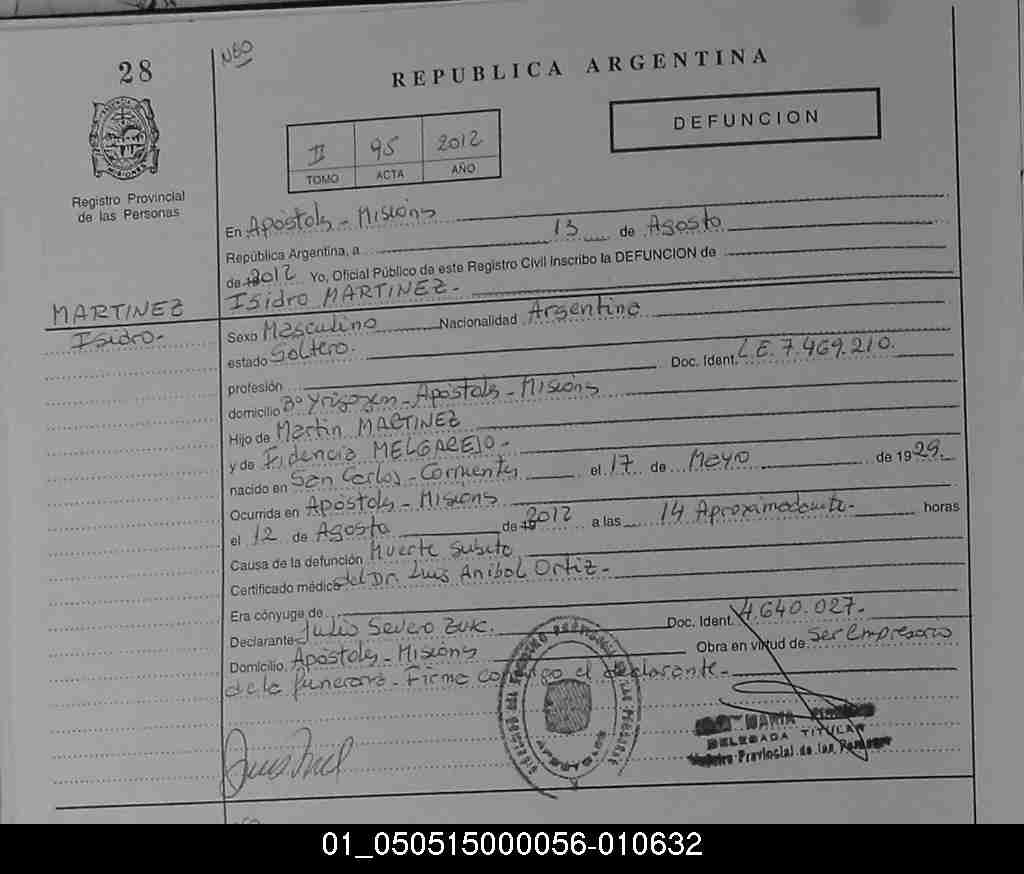 28
NEO
REPUBLICA ARGENTINA
II 95 2012
TOMO ACTA AÑO
DEFUNCION
Registro Provincial
de las Personas
En Apóstoles - Misiones
República Argentina, a 13 de Agosto
de 2012 Yo, Oficial Público de este Registro Civil inscribo la DEFUNCION de
Isidro MARTINEZ.-
MARTINEZ
Isidro.-
Sexo Masculino Nacionalidad Argentino
estado Soltero.
profesión Doc. Ident. L.E. 7.469.210.
domicilio Bº Yrigoyen - Apóstoles - Misiones
Hijo de Martin MARTINEZ
y de Fidencia MELGAREJO.-
nacido en San Carlos - Corrientes el 17 de Mayo de 1929.
Ocurrida en Apóstoles - Misiones
el 12 de Agosto de 2012 a las 14 Aproximadamente.- horas
Causa de la defunción Muerte Subita
Certificado médico del Dr. Luis Anibal Ortiz.-
Era cónyuge de
Declarante Julio Severo Zuk. Doc. Ident. 4.640.027.-
Domicilio Apóstoles - Misiones Obra en virtud de Ser Empresario
de la funeraria.- Firma conmigo el declarante.-
MARIA
DELEGADA TITULAR
Registro Provincial de las Personas
01_050515000056-010632